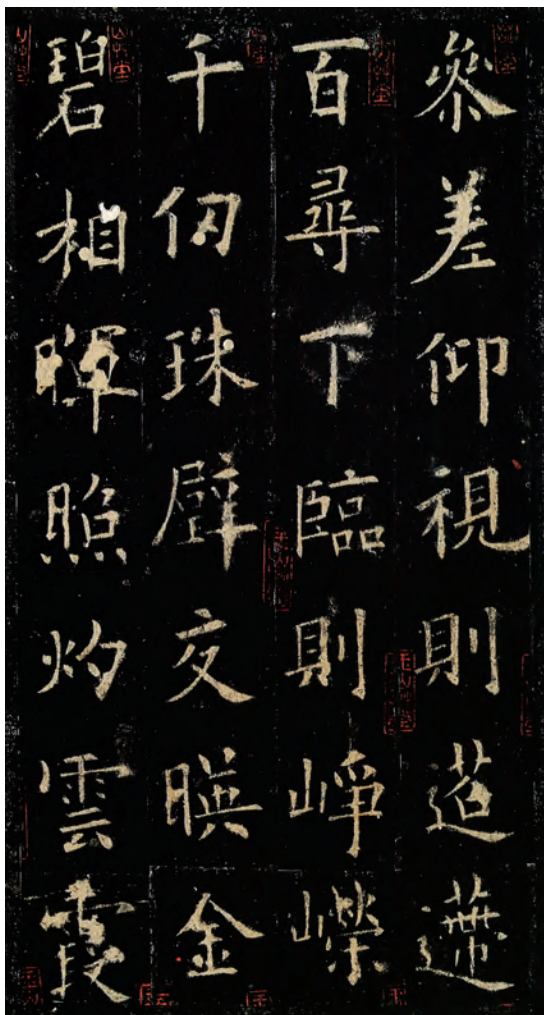 參差仰視則迢遰
百尋下臨則崢嶸
千仞珠壁交暎金
碧相暉照灼雲霞